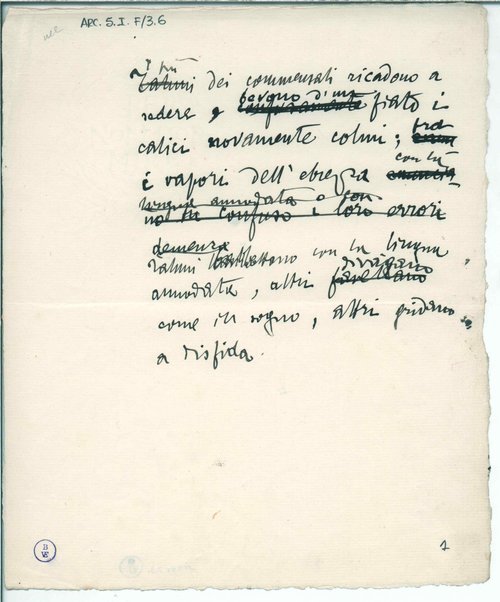 ARC. 5. I. F/3.6
I più
Taluni dei commensali ricadono a
sedere e bevono d'un
confusamente fiato i
calici novamente colmi; tra
con la
i vapori dell'ebrezza comincia
lingua annodata e con
no in confuso i loro errori
demenza
Taluni balbettano con la lingua
divagano
annodata, altri favellano
come in sogno, altri gridano
a disfida.
B
VE
1